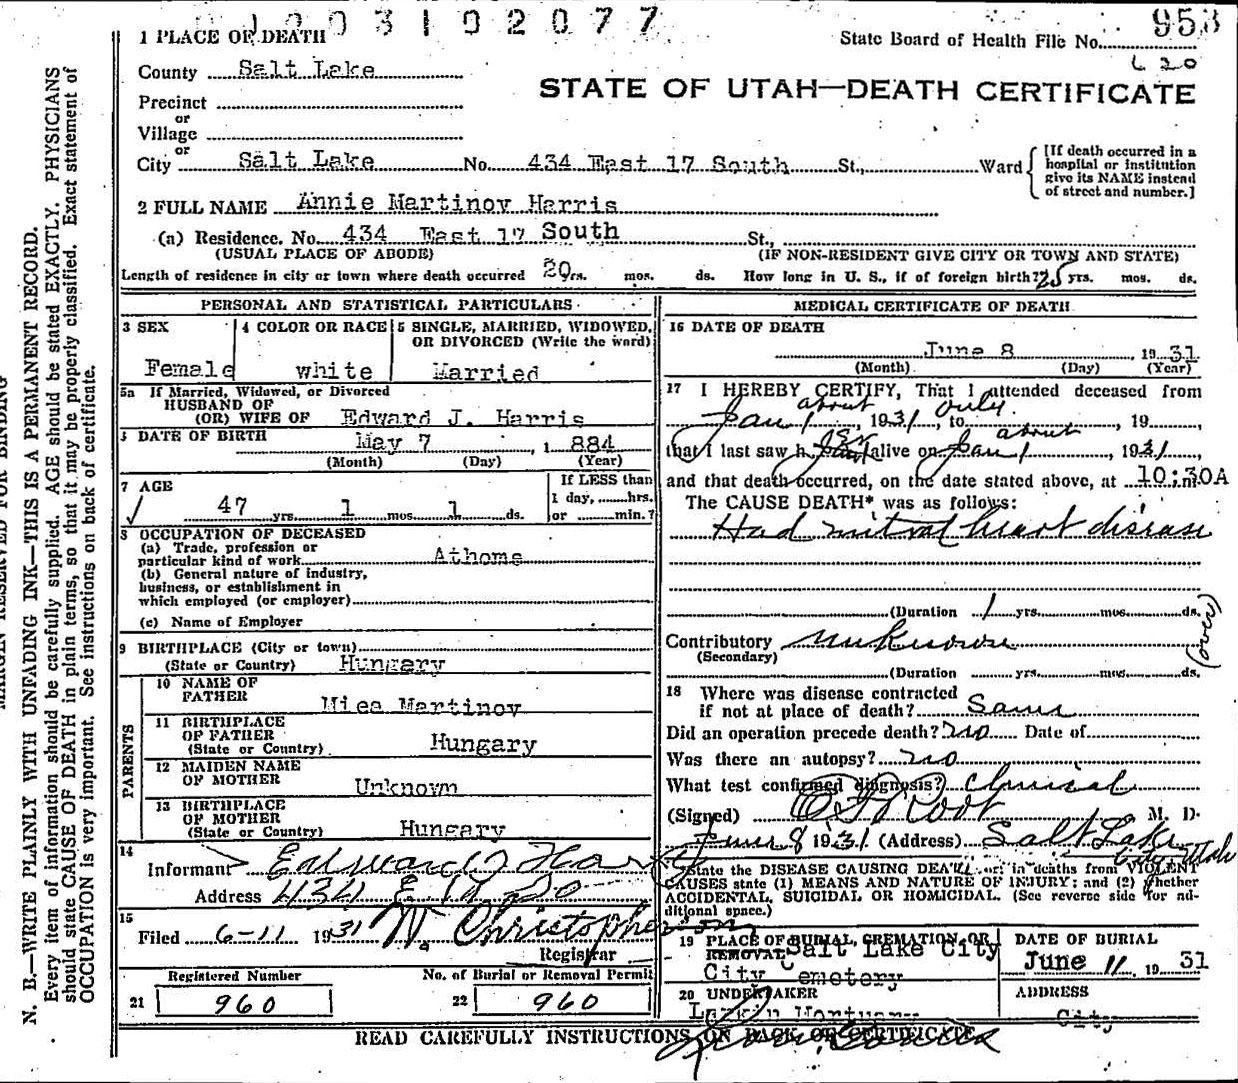 203102077
1 PLACE OF DEATH
State Board of Health File No. 953
County Salt Lake
STATE OF UTAH—DEATH CERTIFICATE
Precinct
or
Village
or
City Salt Lake No. 434 East 17 South St., Ward
[If death occurred in a hospital or institution give its NAME instead of street and number.]
2 FULL NAME Annie Martinov Harris
(a) Residence, No. 434 East 17 South St.,
(USUAL PLACE OF ABODE) (IF NON-RESIDENT GIVE CITY OR TOWN AND STATE)
Length of residence in city or town where death occurred 20 yrs. mos. ds. How long in U. S., if of foreign birth? 25 yrs. mos. ds.
PERSONAL AND STATISTICAL PARTICULARS
3 SEX
Female
4 COLOR OR RACE
white
5 SINGLE, MARRIED, WIDOWED, OR DIVORCED (Write the word)
Married
5a If Married, Widowed, or Divorced
HUSBAND OF
(OR) WIFE OF Edward J. Harris
DATE OF BIRTH May 7, 1884
(Month) (Day) (Year)
7 AGE
47 yrs. 1 mos. 1 ds.
If LESS than
1 day, hrs.
or min.?
8 OCCUPATION OF DECEASED
(a) Trade, profession or
particular kind of work Athome
(b) General nature of industry,
business, or establishment in
which employed (or employer)
(c) Name of Employer
9 BIRTHPLACE (City or town)
(State or Country) Hungary
PARENTS
10 NAME OF
FATHER Martinov
11 BIRTHPLACE
OF FATHER
(State or Country) Hungary
12 MAIDEN NAME
OF MOTHER Unknown
13 BIRTHPLACE
OF MOTHER
(State or Country) Hungary
14
Informant Edward J Harris
Address 434 E. 17 So
15
Filed 6-11 1931 W. Christopherson
Registrar
Registered Number
21 960
No. of Burial or Removal Permit
22 960
MEDICAL CERTIFICATE OF DEATH
16 DATE OF DEATH
June 8, 1931
(Month) (Day) (Year)
17 I HEREBY CERTIFY, That I attended deceased from
about only
Jan 1, 1931, to, 19,
that I last saw her alive on about Jan 1, 1931,
and that death occurred, on the date stated above, at 10:30A m.
The CAUSE DEATH* was as follows:
Had mitral heart disease
(Duration 1 yrs. mos. ds.
(over)
Contributory unknown
(Secondary)
(Duration yrs. mos. ds.
18 Where was disease contracted
if not at place of death? Same
Did an operation precede death? no Date of
Was there an autopsy? no
What test confirmed diagnosis? Clinical
(Signed) Root M. D.
June 8 1931 (Address) Salt Lake City Utah
*State the DISEASE CAUSING DEATH, or in deaths from VIOLENT
CAUSES state (1) MEANS AND NATURE OF INJURY; and (2) whether
ACCIDENTAL, SUICIDAL OR HOMICIDAL. (See reverse side for ad-
ditional space.)
19 PLACE OF BURIAL, CREMATION, OR
REMOVAL Salt Lake City
City Cemetery
DATE OF BURIAL
June 11, 1931
20 UNDERTAKER
Larkin Mortuary
ADDRESS
City
READ CAREFULLY INSTRUCTIONS ON BACK OF CERTIFICATE
MARGIN RESERVED FOR BINDING
N. B.—WRITE PLAINLY WITH UNFADING INK—THIS IS A PERMANENT RECORD.
Every item of information should be carefully supplied. AGE should be stated EXACTLY. PHYSICIANS
should state CAUSE OF DEATH in plain terms, so that it may be properly classified. Exact statement of
OCCUPATION is very important. See instructions on back of certificate.